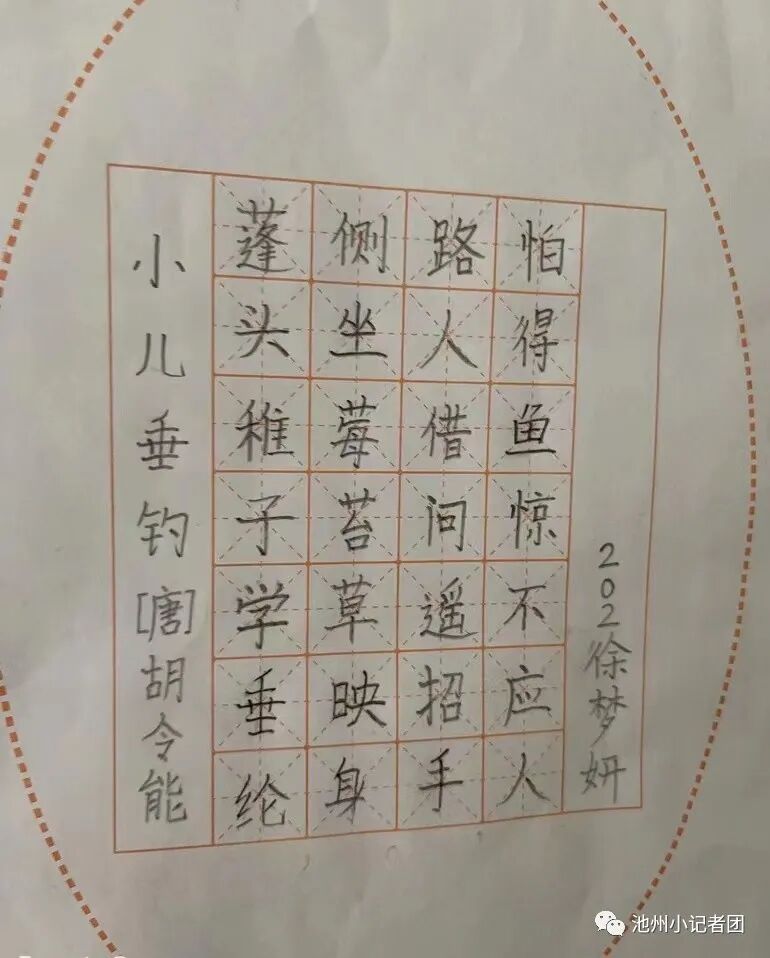 小儿垂钓[唐]胡令能
蓬头稚子学垂纶
侧坐莓苔草映身
路人借问遥招手
怕得鱼惊不应人
202徐梦妍
池州小记者团